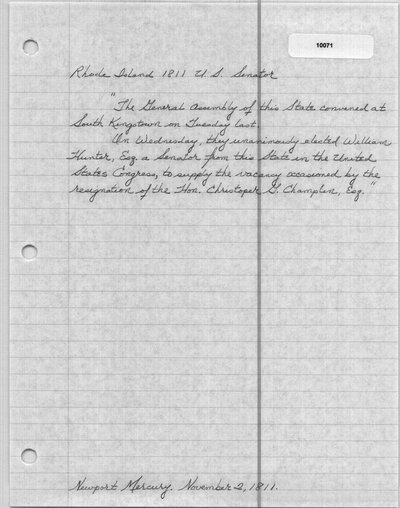 10071
Rhode Island 1811 U.S. Senator
"The General Assembly of this State convened at
South Kingstown on Tuesday last.
On Wednesday, they unanimously elected William
Hunter, Esq. a Senator from this State in the United
States Congress, to supply the vacancy occasioned by the
resignation of the Hon. Christoper G. Champlin, Esq."
Newport Mercury. November 2, 1811.